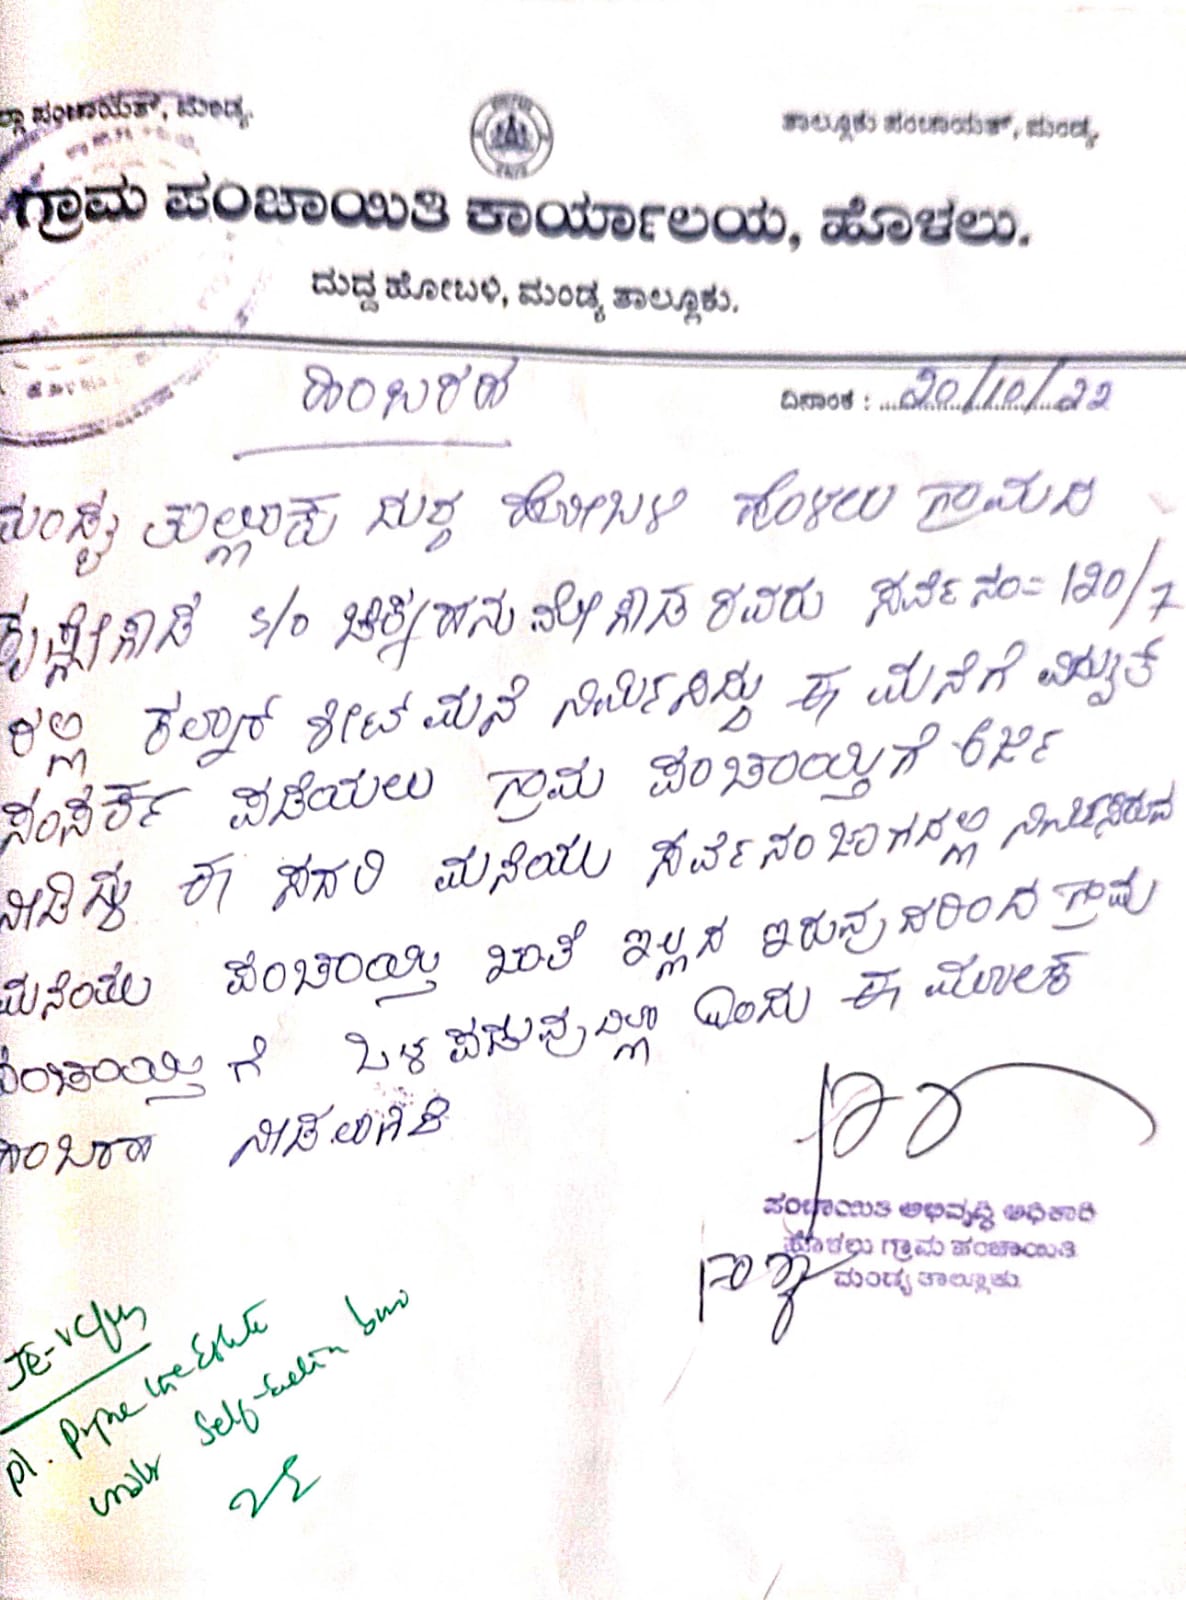 ಪಂಚಾಯತ್, ಮಂಡ್ಯ.
ತಾಲ್ಲೂಕು ಪಂಚಾಯತ್, ಮಂಡ್ಯ
ಗ್ರಾಮ ಪಂಚಾಯಿತಿ ಕಾರ್ಯಾಲಯ, ಹೊಳಲು.
ದುದ್ದ ಹೋಬಳಿ, ಮಂಡ್ಯ ತಾಲ್ಲೂಕು.
ಹಿಂಬರಹ
ದಿನಾಂಕ : 20/10/22
ಮಂಡ್ಯ ತಾಲ್ಲೂಕು ದುದ್ದ ಹೋಬಳಿ ಹೊಳಲು ಗ್ರಾಮದ
S/o ಚಿಕ್ಕಹನುಮೇಗೌಡ ರವರು ಸರ್ವೆ ನಂ= 120/7
ರಲ್ಲಿ ಕಲ್ನಾರ್ ಶೀಟ್ ಮನೆ ನಿರ್ಮಿಸಿದ್ದು ಈ ಮನೆಗೆ ವಿದ್ಯುತ್
ಸಂಪರ್ಕ ಪಡೆಯಲು ಗ್ರಾಮ ಪಂಚಾಯ್ತಿಗೆ ಅರ್ಜಿ
ಈ ಸದರಿ ಮನೆಯು ಸರ್ವೆ ನಂ ಜಾಗದಲ್ಲಿ
ಪಂಚಾಯ್ತಿ ಖಾತೆ ಇಲ್ಲದ ಇರುವುದರಿಂದ ಗ್ರಾಮ
ಪಂಚಾಯ್ತಿ ಗೆ ಒಳಪಡುವುದಿಲ್ಲಾ ಎಂದು ಈ ಮೂಲಕ
ಹಿಂಬರಹ ನೀಡಲಾಗಿದೆ
ಪಂಚಾಯಿತಿ ಅಭಿವೃದ್ಧಿ ಅಧಿಕಾರಿ
ಹೊಳಲು ಗ್ರಾಮ ಪಂಚಾಯಿತಿ
ಮಂಡ್ಯ ತಾಲ್ಲೂಕು.
JE-
Pl. Prepare Estimate
under Self-Execution